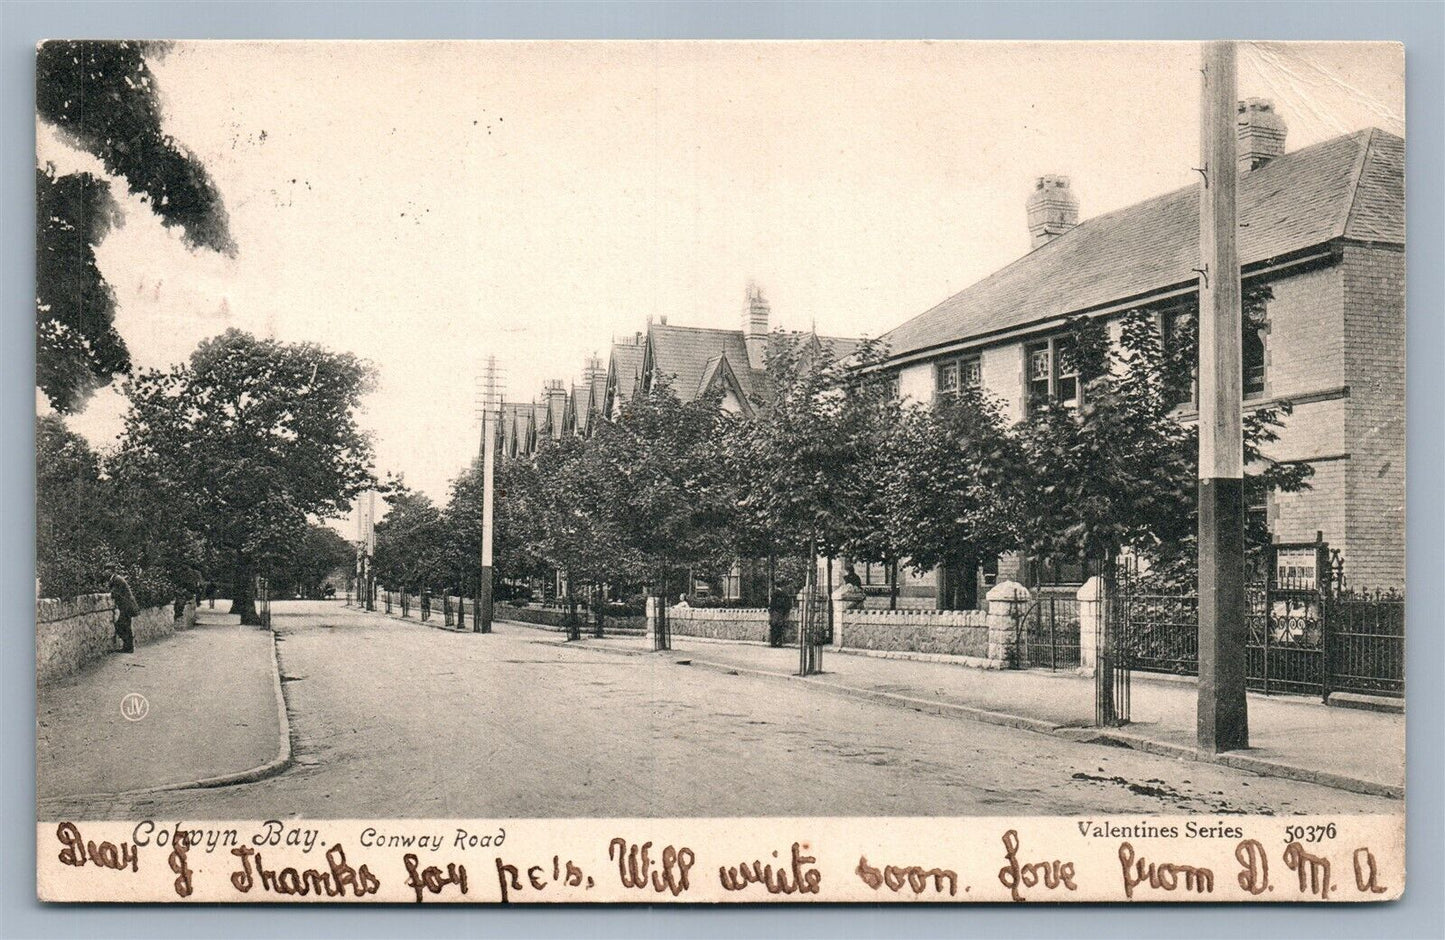 JV
Colwyn Bay. Conway Road
Valentines Series 50376
Dear J Thanks for pc's. Will write soon. Love from D. M. A